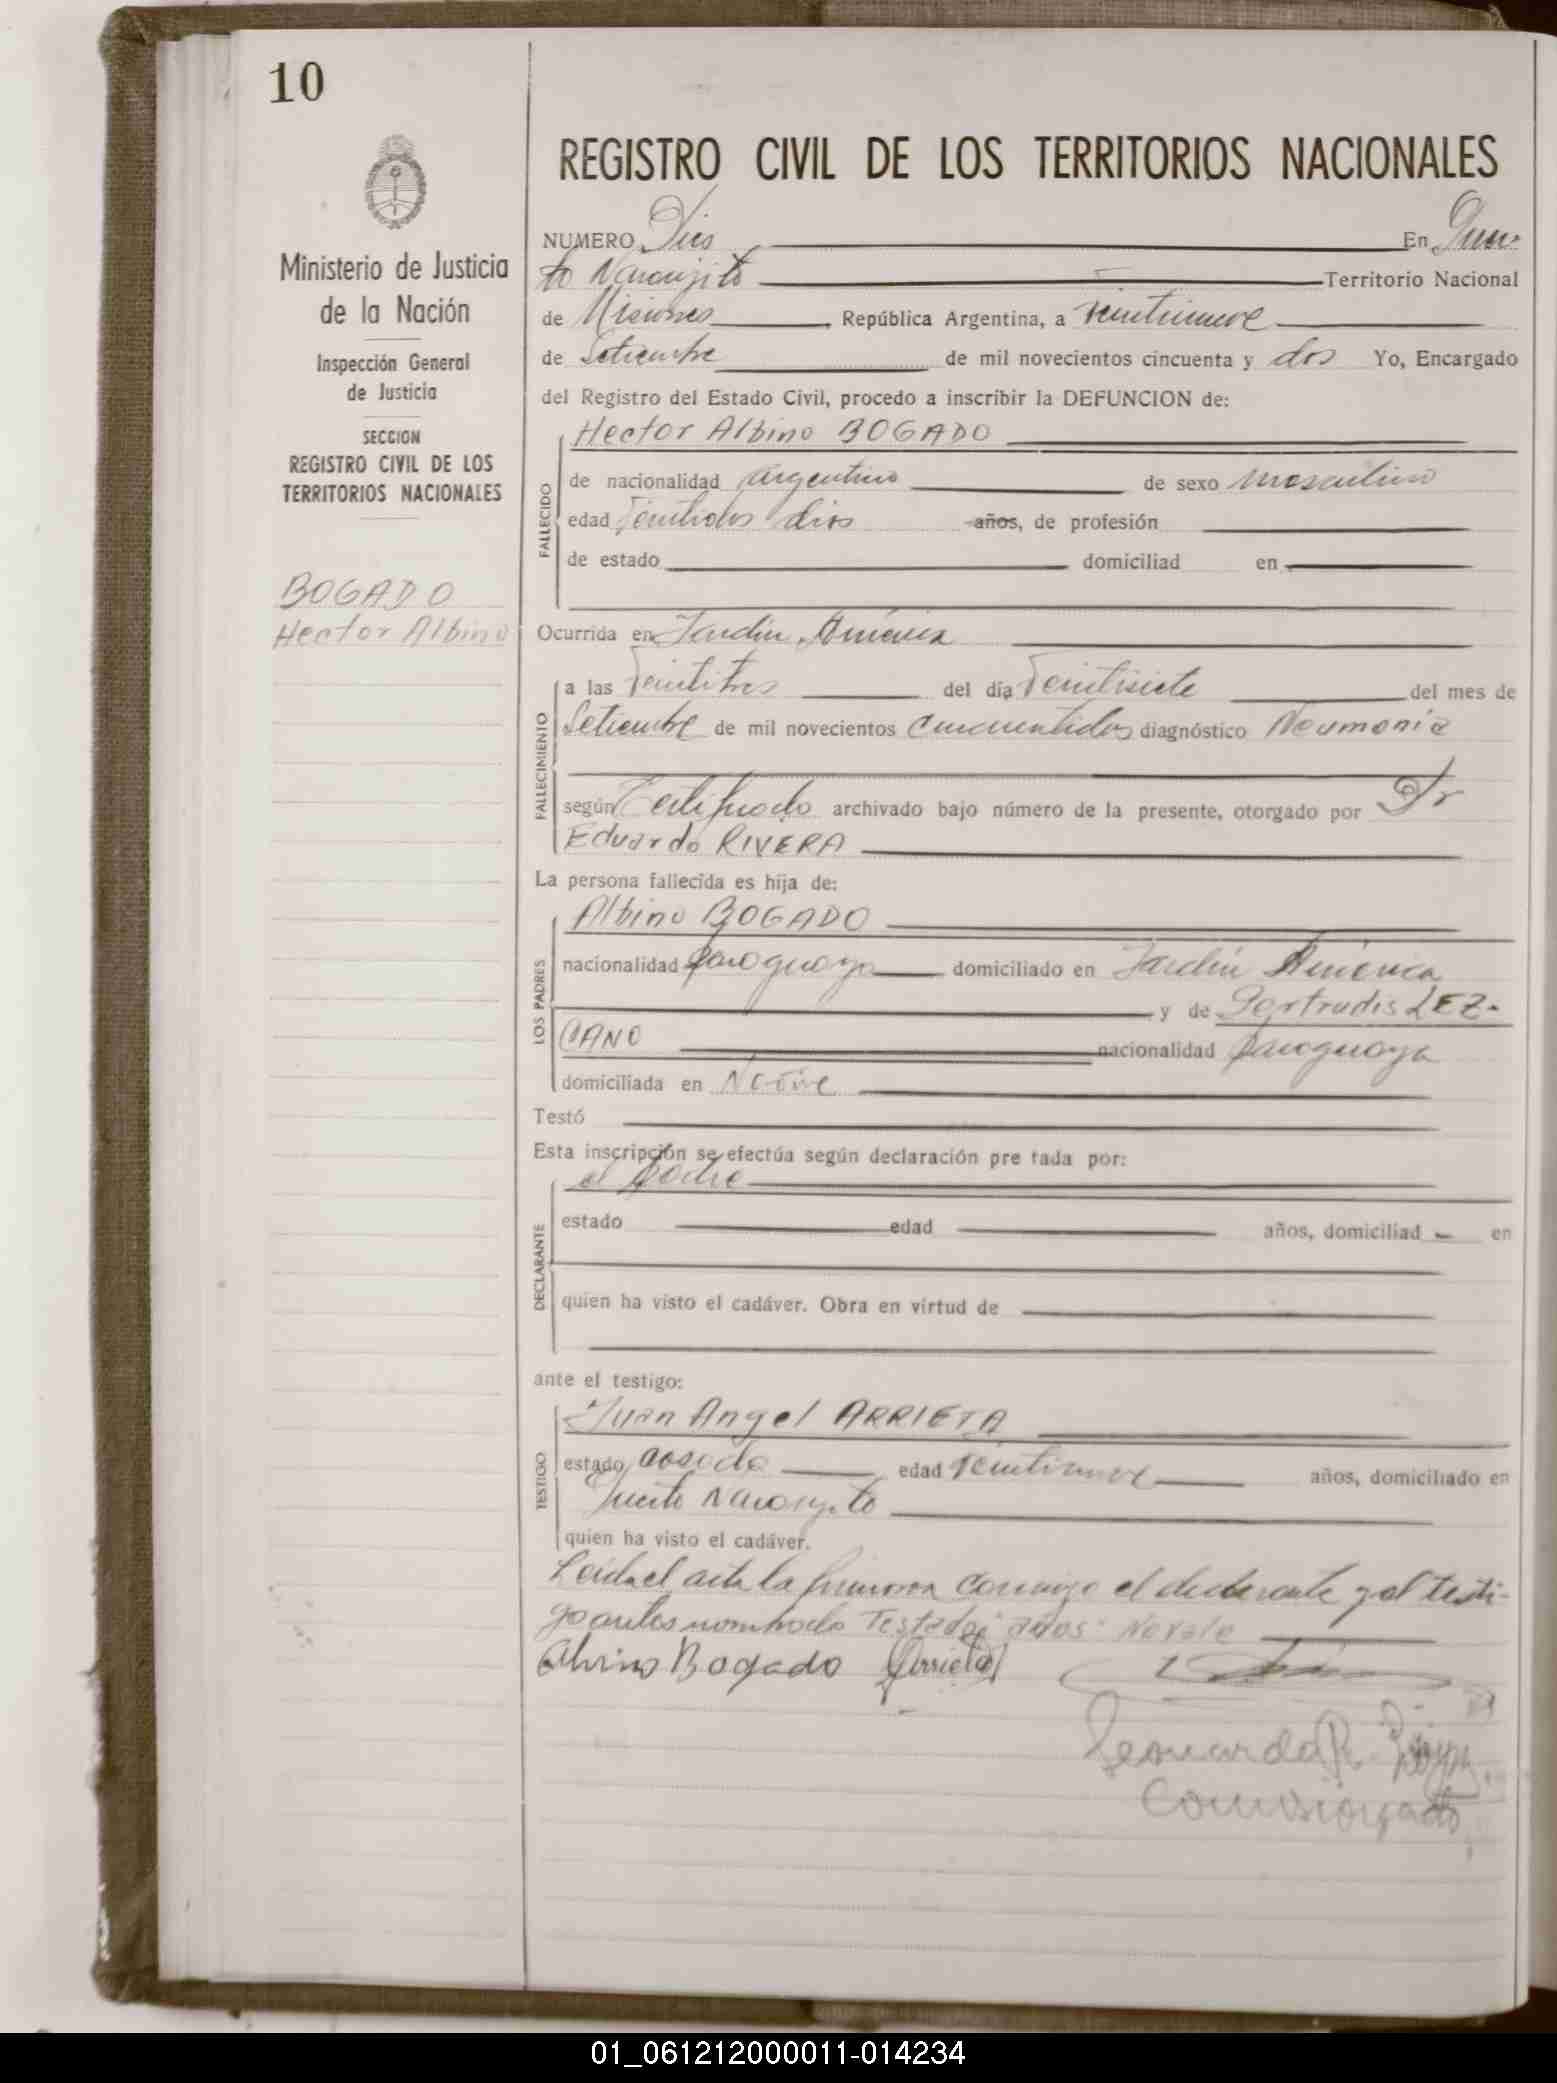 10
Ministerio de Justicia
de la Nación
Inspección General
de Justicia
SECCION
REGISTRO CIVIL DE LOS
TERRITORIOS NACIONALES
BOGADO
Hector Albino
REGISTRO CIVIL DE LOS TERRITORIOS NACIONALES
NUMERO Dies En Puer-
to Naranjito Territorio Nacional
de Misiones República Argentina, a veintinueve
de Setiembre de mil novecientos cincuenta y dos Yo, Encargado
del Registro del Estado Civil, procedo a inscribir la DEFUNCION de:
FALLECIDO
Hector Albino BOGADO
de nacionalidad argentino de sexo masculino
edad Veintidos dias años, de profesión
de estado domiciliad en
Ocurrida en Jardin América
FALLECIMIENTO
a las Veintitres del día Veintisiete del mes de
Setiembre de mil novecientos cincuentidos diagnóstico Neumonia
según Certificado archivado bajo número de la presente, otorgado por Dr
Eduardo RIVERA
La persona fallecida es hija de:
LOS PADRES
Albino BOGADO
nacionalidad paraguaya domiciliado en Jardin América
y de Gertrudis LEZ-
CANO nacionalidad paraguaya
domiciliada en
Testó
Esta inscripción se efectúa según declaración pre tada por:
DECLARANTE
el padre
estado edad años, domiciliad en
quien ha visto el cadáver. Obra en virtud de
ante el testigo:
TESTIGO
Juan Angel ARRIETA
estado casado edad veintinueve años, domiciliado en
Puerto Naranjito
quien ha visto el cadáver.
Leida el acta la firmaron conmigo el declarante y el testi-
go antes nombrado Testado: "años" No vale
Alvino Bogado Arrieta
Leonardo R.
Comisionado
01_061212000011-014234